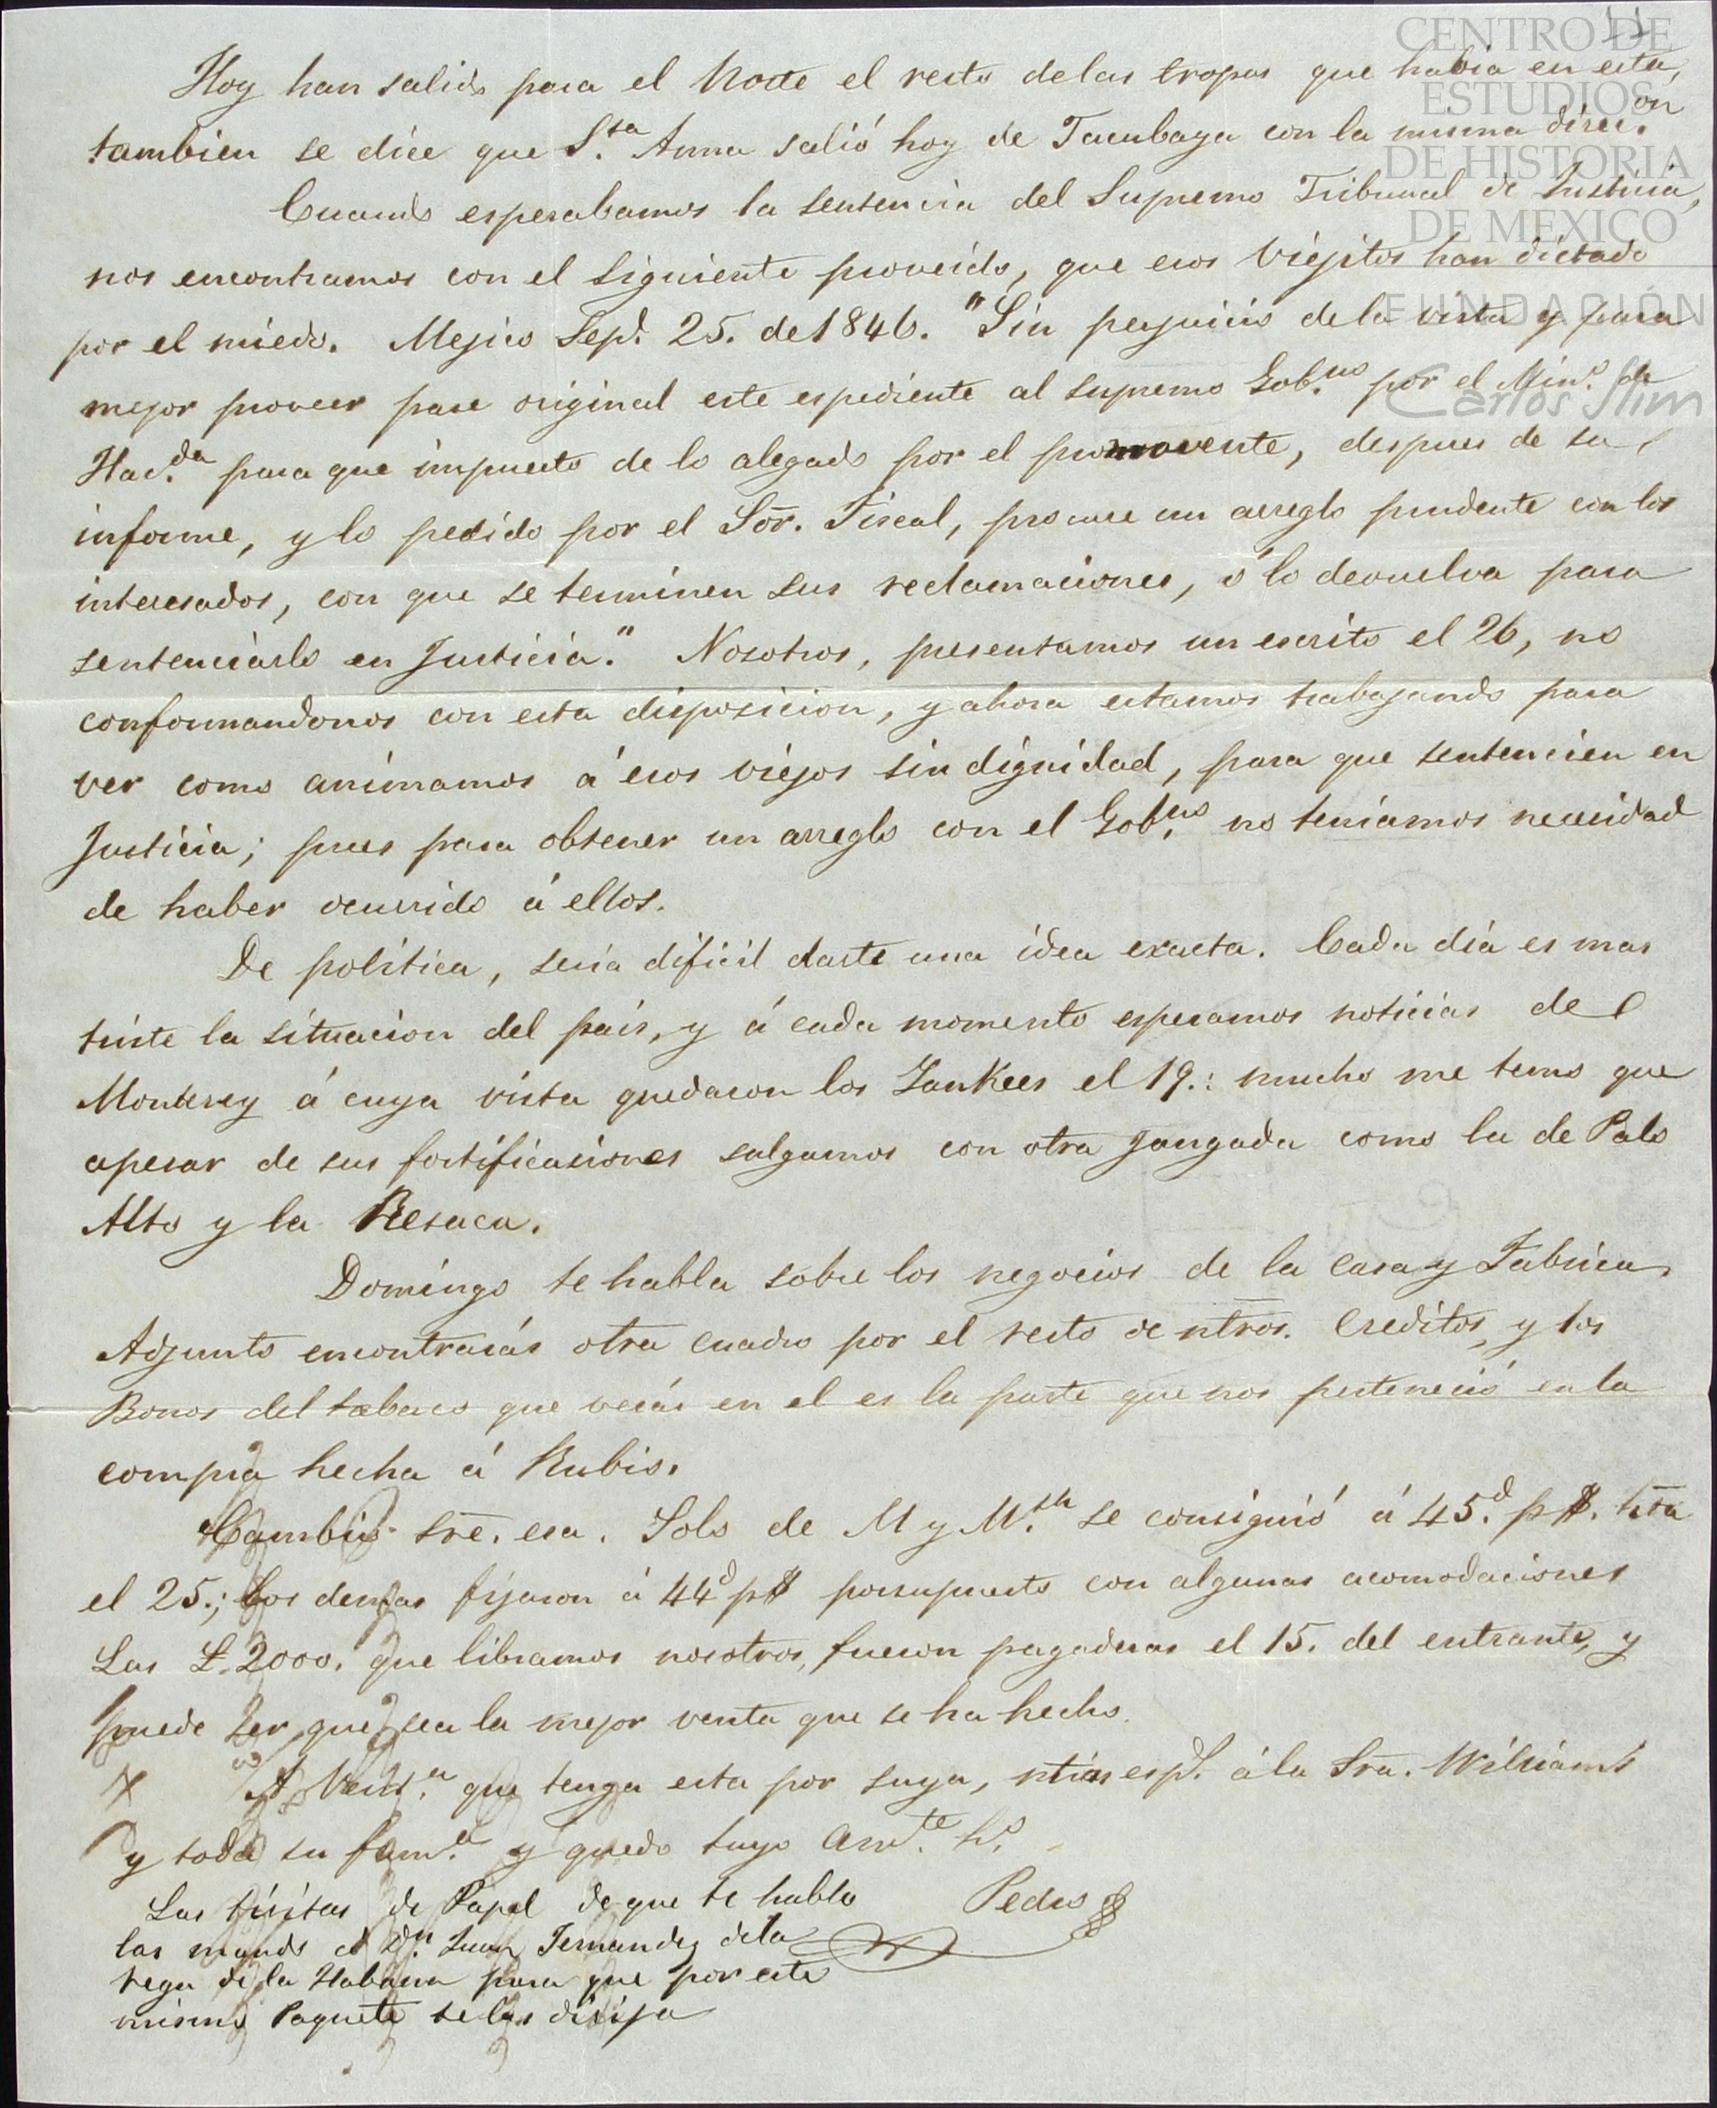 CENTRO DE
ESTUDIOS
DE HISTORIA
DE MEXICO
FUNDACIÓN
Carlos Slim
Hoy han salido para el Norte el resto delas tropas que habia en esta,
tambien se dice que S.ta Anna salió hoy de Tacubaya con la misma direc.on
Cuando esperabamos la sentencia del Supremo Tribunal de Justicia,
nos encontramos con el siguiente proveido, que esos Viejitos han dictado
por el miedo. Mejico Sep.e 25. de 1846. "Sin perjuicio dela vista y para
mejor proveer pase original este espediente al supremo Gob.no por el Min.o de
Hac.da para que impuesto de lo alegado por el promovente, despues de su
informe, y lo pedido por el Sōr. Fiscal, procure un arreglo prudente con los
interesados, con que se terminen sus reclamaciones, ó lo devuelva para
sentenciarlo en Justicia." Nosotros, presentamos un escrito el 26, no
conformandonos con esta disposicion, y ahora estamos trabajando para
ver como animamos á esos viejos sin dignidad, para que sentencien en
Justicia; pues para obtener un arreglo con el Gob.no no teniamos necesidad
de haber ocurrido á ellos.
De politica, seria dificil darte una idea exacta. Cada dia es mas
triste la situacion del pais, y á cada momento esperamos noticias de
Monterey á cuya vista quedaron los Yankees el 19.: mucho me temo que
apesar de sus fortificasiones salgamos con otra jangada como la de Palo
Alto y la Resaca.
Domingo te habla sobre los negocios de la casa y Fabrica
Adjunto encontrarás otro cuadro por el resto de ntros. Creditos, y los
Bonos del tabaco que verás en el es la parte que nos perteneció en la
compra hecha á Rubio.
Cambio sre. esa. Solo de M y M.sh se consiguió á 45.d p$. hta
el 25.; Los demas fijaron á 44d p$ porsupuesto con algunas acomodaciones
Las £.2000. que libramos nosotros, fueron pagaderas el 15. del entrante, y
puede ser que sea la mejor venta que se ha hecho.
X A Vent.a que tenga esta por suya, esp.s á la Sra. Williams
y toda su fam.a y quedo tuyo am.te h.o
Pedro
Las de Papel de que te hablo
las mando el Dn. Juan Fernandez dela
vega de la Habana para que por este
mismo Paquete telas dirija